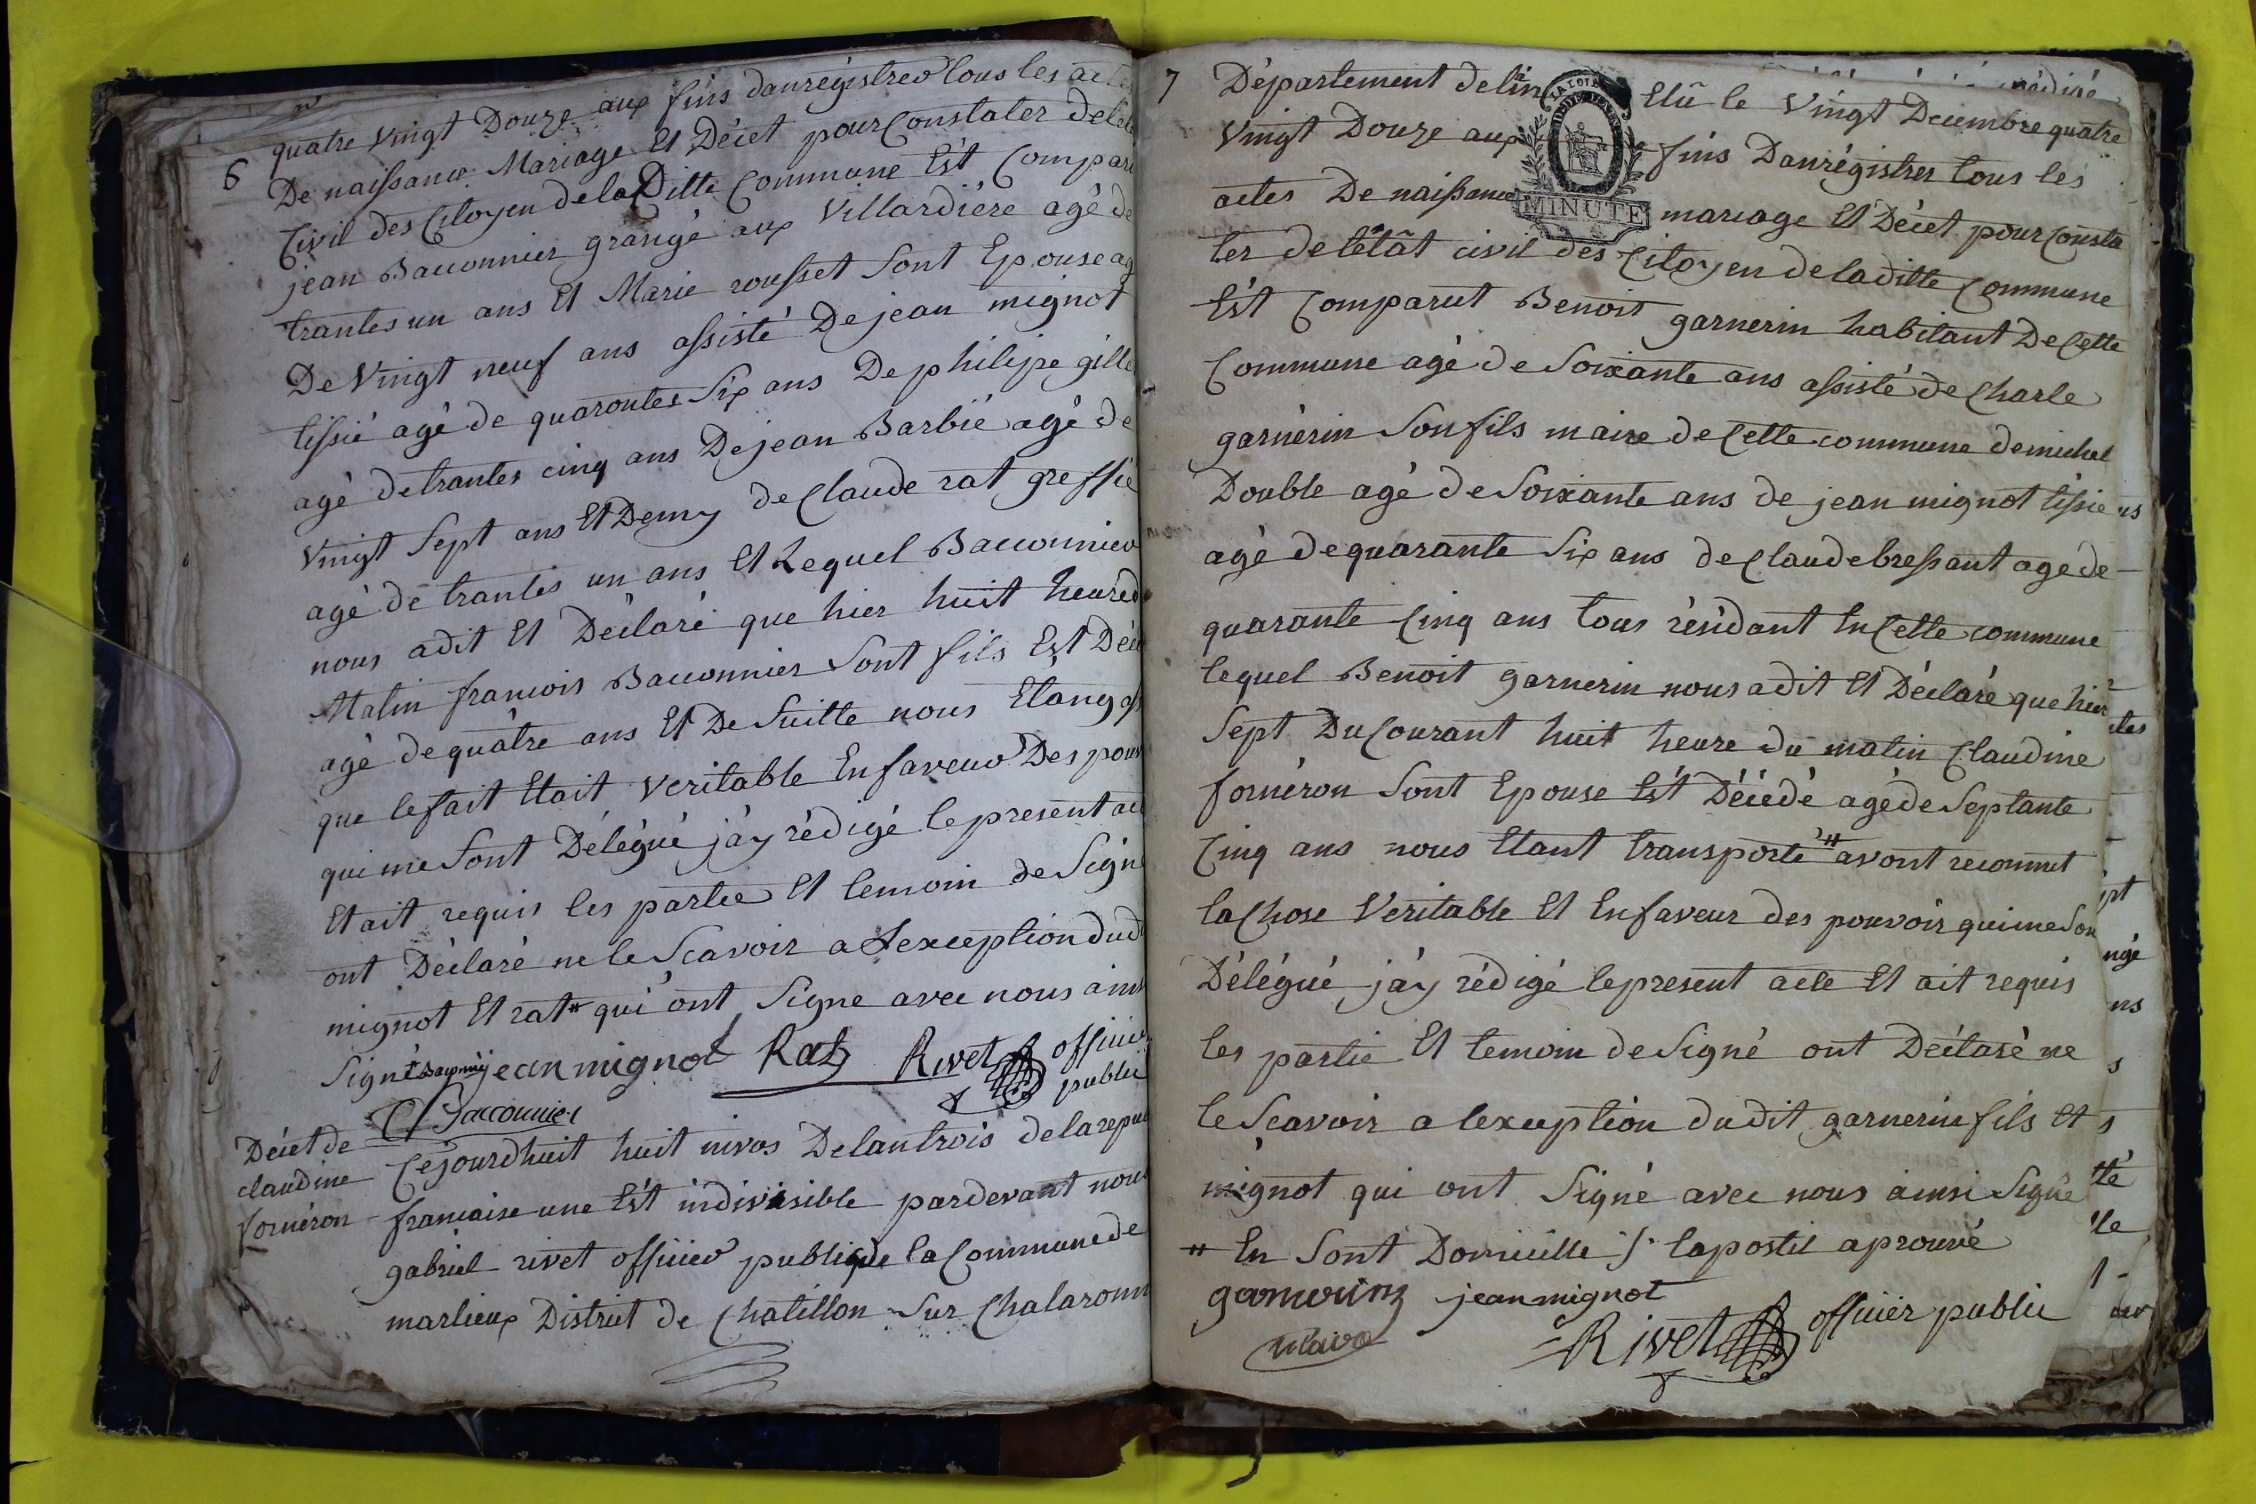 6
quatre vingt Douze aux fins danregistrer tous les acte
De naissance Mariage Et Décet pour Constater de leta
Civil des Citoyen de la Ditte Commune Ést Comparu
jean Bacconnier grangé aux Villardiére agé de
trantes un ans Et Marie rousset Sont Epouse ag
De Vingt neuf ans assisté De jean mignot
tissié agé de quarantes Six ans De philipe gille
agé de trantes cinq ans De jean Barbié agé de
Vingt Sept ans Et Demy de Claude rat greffié
agé de trantes un ans Et Lequel Bacconnier
nous adit Et Déclaré que hier huit heure d
Matin francois Bacconnier Sont fils Est Déc
agé de quâtre ans Et De Suitte nous Etang ass
que le fait Etait Veritable En faveur Des pouv
qui me Sont Délégué j'ay rédigé le present act
Et ait requis les partie Et temoin de Signé
ont Déclaré ne le Scavoir a Lexception dud
mignot Et rat # qui ont Signe avec nous ainsi
Signé jean mignot Rat Rivet officier
public
Bacconnier
Décet de
claudine
fornéron
Cejourdhuit huit nivos De lan trois de la repub
francaise une Ést indivisible pardevant nous
gabriel rivet officier publique de la Commune de
marlieux District de Chatillon Sur Chalaronn
7
Département de lin Elû le Vingt Decembre quatre
Vingt Douze aux fins Danrégistrer tous les
actes De naissance mariage Et Décet pour Consta
MINUTE
ter de létât civil des Citoyen de la ditte Commune
Ést Comparut Benoit garnerin habitant De Cette
Commune agé de Soixante ans assisté de Charle
garnérin Son fils maire de Cette commune de michel
Double agé de Soixante ans de jean mignot tissie
agé de quarante Six ans de Claude bressant agé de
quarante Cinq ans tous résidant En Cette commune
lequel Benoit garnerin nous adit Et Déclaré que hier
Sept Du Courant huit heure du matin Claudine
fornéron Sont Epouse Ést Décédé agé de Septante
Cinq ans nous Etant transporté # avont reconnut
la Chose Veritable Et En faveur des pouvoir qui me Son
Délégué j'ay rédigé le present acte Et ait requis
les partie Et temoin de Signé ont Déclaré ne
le Scavoir a lexception du dit garnerin fils Et
mignot qui ont Signé avec nous ainsi Signé
# En Sont Domicille /. lapostil aprouvé
garnerin jean mignot
maire Rivet officier public